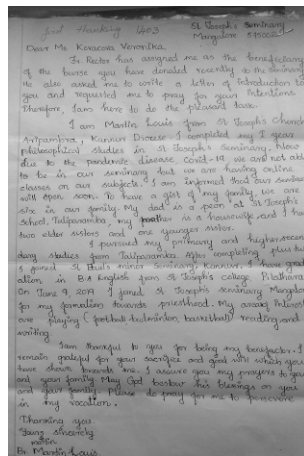 St Joseph's Seminary
God thanking 1403 Mangalore 575002
Dear Ms Kovacova Veronika,
Fr. Rector has assigned me as the beneficiary
of the burse you have donated recently to the seminary.
He also asked me to write a letter of introduction to
you and requested me to pray for your intentions.
Therefore, I am here to do the pleasant task.
I am Martin Louis from St Joseph's Church
Kannur Diocese. I completed my I year
philosophical studies in St Joseph's Seminary. Now
due to the pandemic disease, Covid-19 we are not able
to be in our seminary but we are having online
classes on our subjects. I am informed that our seminary
will open soon. To have a gist of my family, we are
six in our family. My dad is a peon at St Joseph's
school, Taliparamba, my mother is a housewife and I have
two elder sisters and one younger sister.
I pursued my primary and higher secon
dary studies from Taliparamba. After completing plus two
I joined St Paul's minor Seminary, Kannur. I have gradu
ation in B.A English from St Joseph's College Pilathara.
On June 9 2019 I joined St Joseph's seminary Mangalore
for my formation towards priesthood. My areas interest
are playing (football, badminton, basketball) reading and
writing.
I am thankful to you for being my benefactor. I
remain grateful for your sacrifice and good will which you
have shown towards me. I assure you my prayers to you
and your family. May God bestow his blessings on you
and your family. Please do pray for me to persevere
in my vocation.
Thanking you
Yours sincerely
Martin
Br. Martin Louis